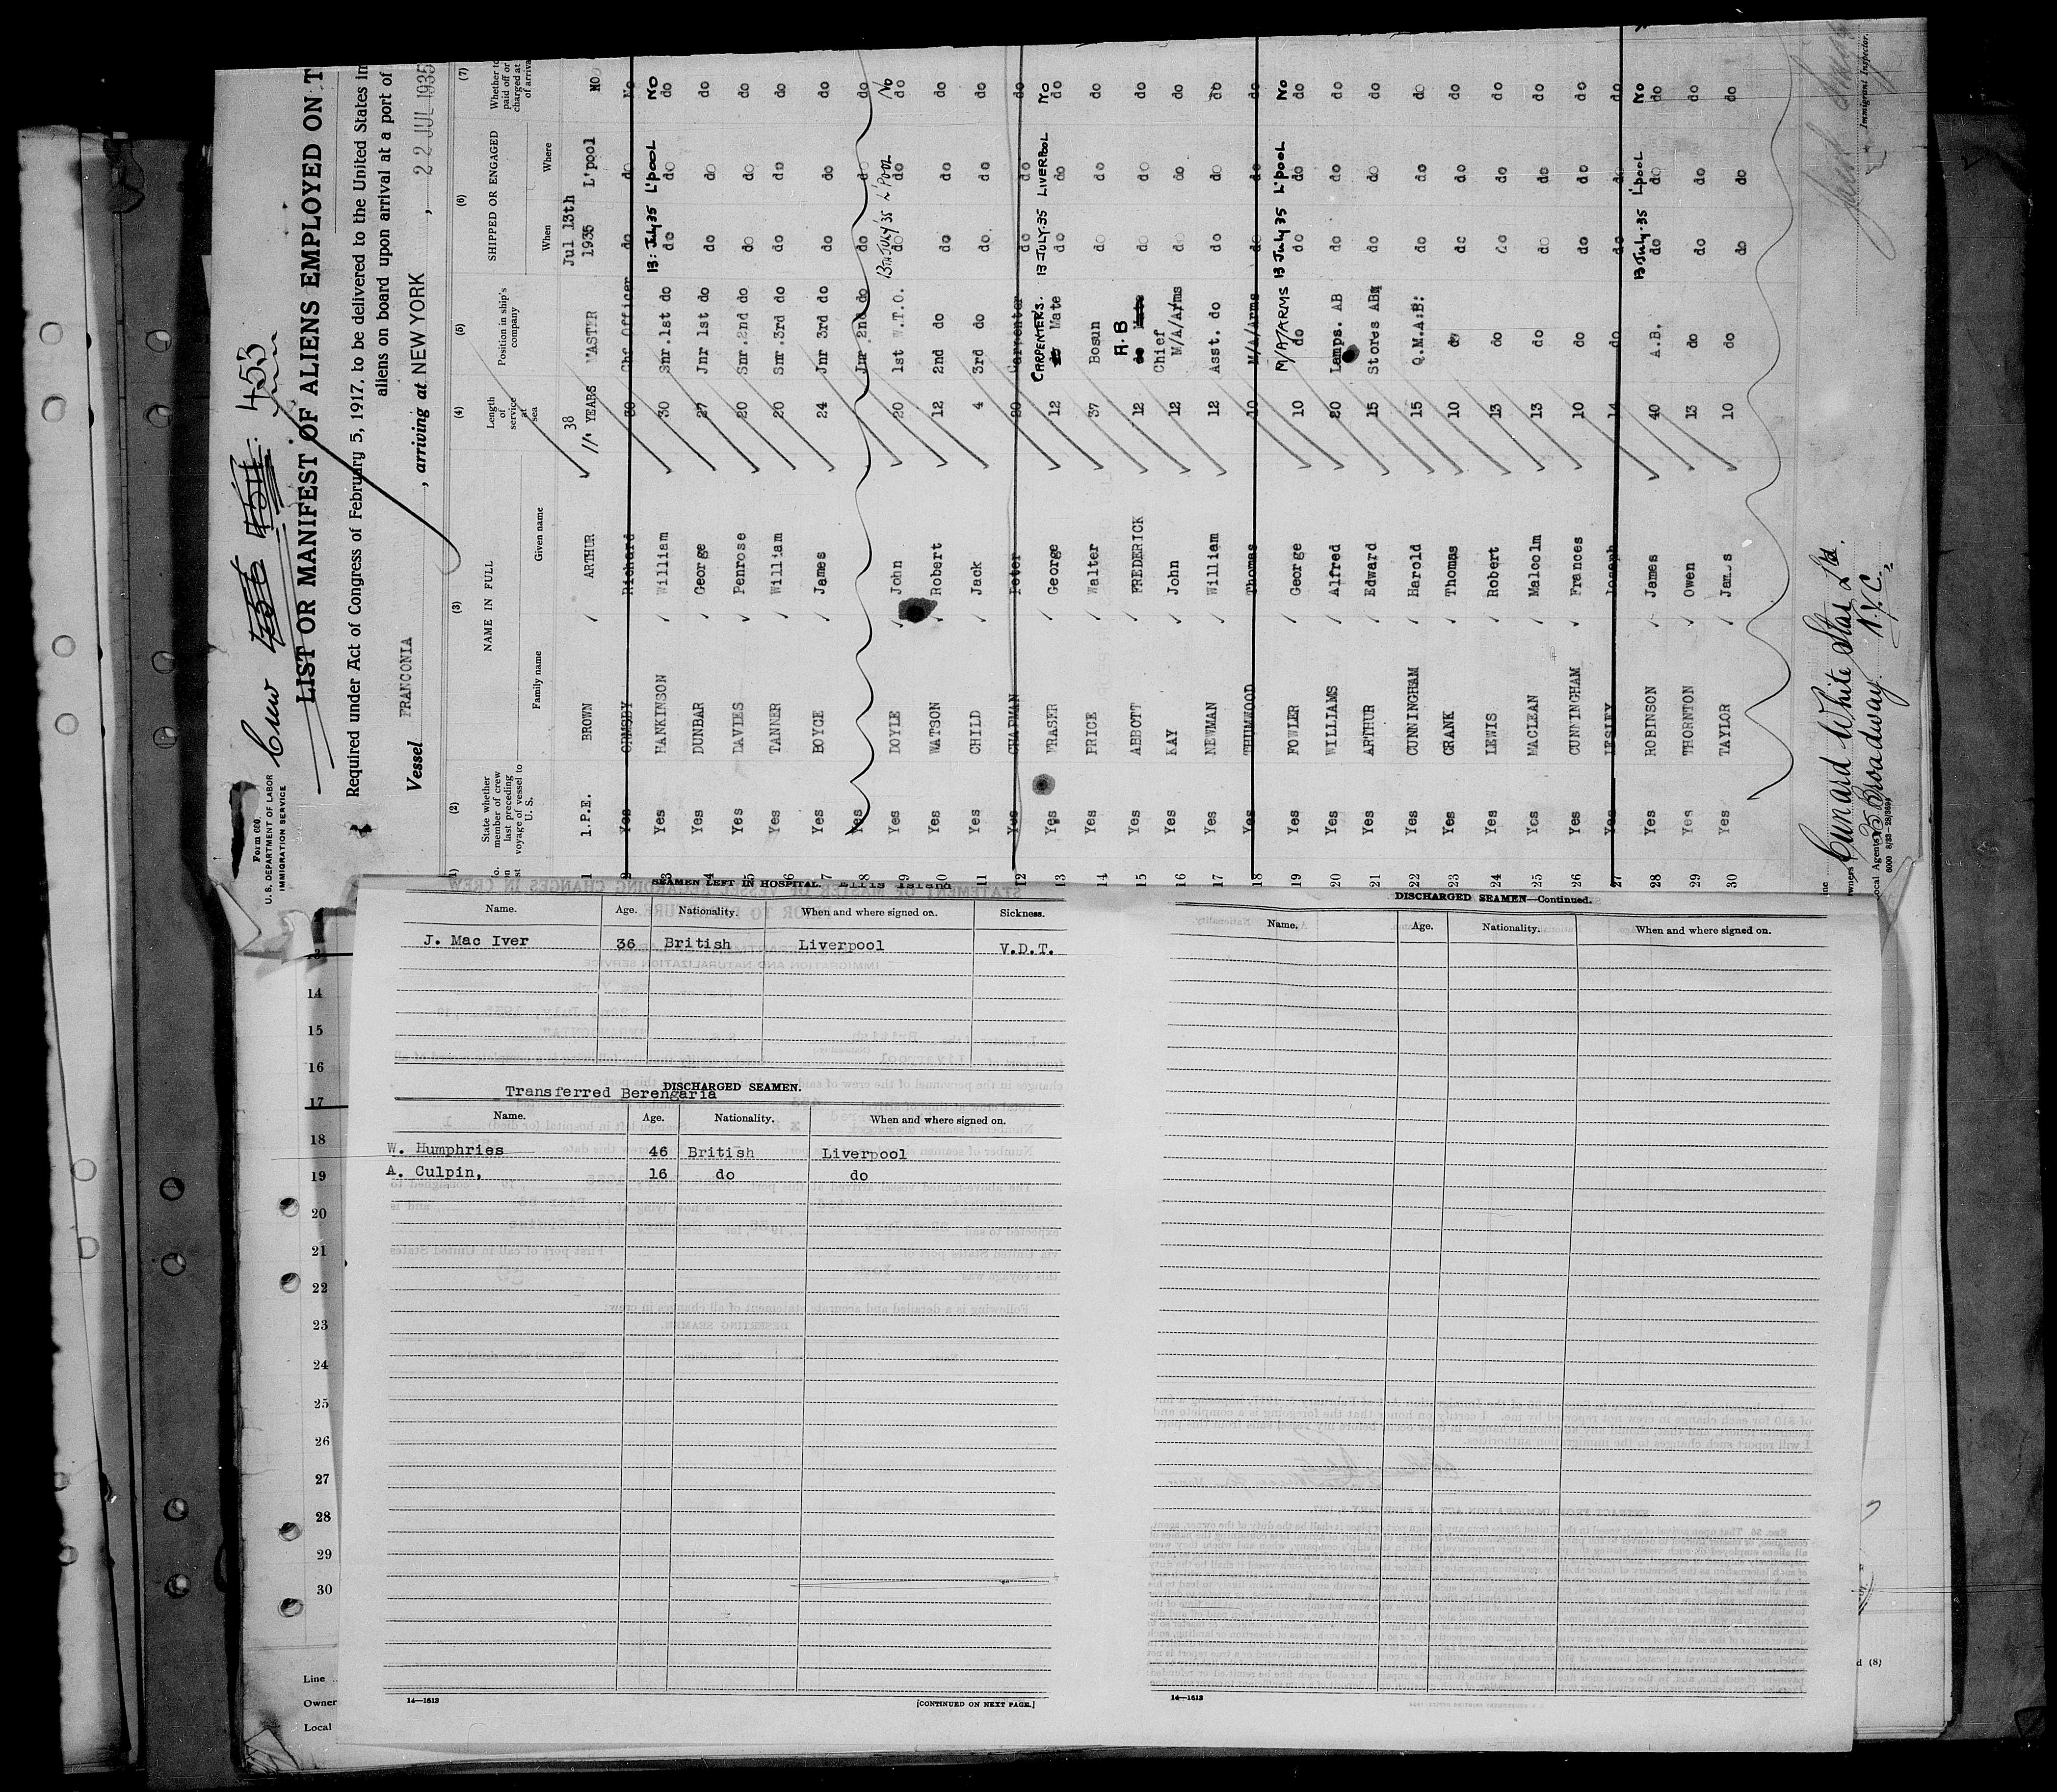 Form 680
U. S. DEPARTMENT OF LABOR
IMMIGRATION SERVICE
Crew 453
LIST OR MANIFEST OF ALIENS EMPLOYED ON T
Required under Act of Congress of February 5, 1917, to be delivered to the United States im
aliens on board upon arrival at a port of
Vessel FRANCONIA , arriving at NEW YORK , 22 JUL 1935
(1) (2) (3) (4) (5) (6) (7)
State whether member of crew last preceding voyage of vessel to U. S. NAME IN FULL Length of service at sea Position in ship's company SHIPPED OR ENGAGED Whether to paid off or charged at of arrival
Family name Given name When Where
1 1.P.E. BROWN ARTHUR 38 YEARS MASTER Jul 13th 1935 L'pool NO
2 Yes ORMSBY Richard 30 Chf Officer do do No
3 Yes HANKINSON William 30 Snr.1st do 13: July 35 L'pool No do do do
4 Yes DUNBAR George 27 Jnr 1st do do do do
5 Yes DAVIES Penrose 20 Snr.2nd do do do do
6 Yes TANNER William 20 Snr.3rd do do do do
7 Yes BOYCE James 24 Jnr 3rd do do do do
8 Yes Jnr.2nd do do do do
9 Yes DOYLE John 20 1st W.T.O. 13TH JULY '35 L'POOL No do do do
10 Yes WATSON Robert 12 2nd do do do do
11 Yes CHILD Jack 4 3rd do do do do
12 Yes CHAPMAN Peter 20 Carpenter do do do
13 Yes FRASER George 12 CARPENTER'S. do Mate 13 JULY.35 LIVERPOOL No do do do
14 Yes PRICE Walter 37 Bosun do do do
15 Yes ABBOTT FREDERICK 12 A.B do Mate do do do
16 Yes KAY John 12 Chief M/A/Arms do do do
17 Yes NEWMAN William 12 Asst. do do do do
18 Yes THUMWOOD Thomas 10 M/A/Arms do do do
19 Yes FOWLER George 10 M/A/ARMS do 13 July 35 L'pool No do do do
20 Yes WILLIAMS Alfred 20 Lamps. AB do do do
21 Yes ARTHUR Edward 15 Stores AB do do do
22 Yes CUNNINGHAM Harold 15 Q.M.A.B. do do do
23 Yes CRANK Thomas 10 do do do do
24 Yes LEWIS Robert 13 do do do do
25 Yes MACLEAN Malcolm 13 do do do do
26 Yes CUNNINGHAM Frances 10 do do do do
27 Yes LESLEY Joseph 14 do do do do
28 Yes ROBINSON James 40 A.B. 13 July.35 L'pool No do do do
29 Yes THORNTON Owen 13 do do do do
30 Yes TAYLOR James 10 do do do do
Immigrant Inspector.
Cunard White Star Ltd.
25 Broadway N.Y.C.
SEAMEN LEFT IN HOSPITAL. Ellis Island
Name. Age. Nationality. When and where signed on. Sickness.
J. Mac Iver 36 British Liverpool V.D.T.
DISCHARGED SEAMEN.
Transferred Berengaria
Name. Age. Nationality. When and where signed on.
W. Humphries 46 British Liverpool
A. Culpin, 16 do do
14—1613 [CONTINUED ON NEXT PAGE.]
DISCHARGED SEAMEN—Continued.
Name. Age. Nationality. When and where signed on.
14—1613
14
15
16
17
18
19
20
21
22
23
24
25
26
27
28
29
30
Line
Owner
Local
d (8)